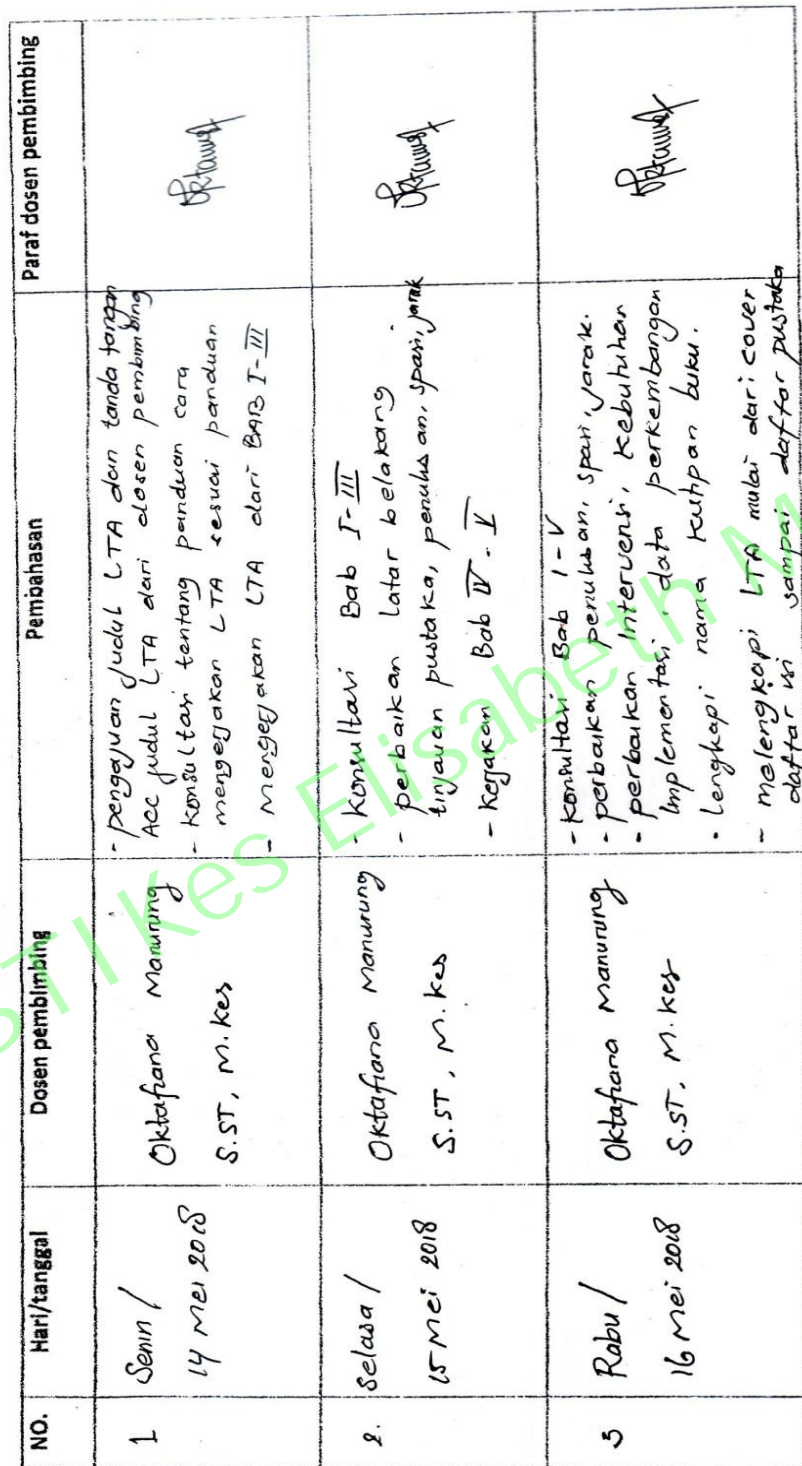 NO. Hari/tanggal Dosen pembimbing Pembahasan Paraf dosen pembimbing
1 Senin /
14 Mei 2018
Oktafiana Manurung
S.ST, M.Kes
- pengajuan judul LTA dan tanda tangan
ACC judul LTA dari dosen pembimbing
- konsultasi tentang panduan cara
mengerjakan LTA sesuai panduan
- Mengerjakan LTA dari BAB I-III
2. Selasa /
15 Mei 2018
Oktafiana Manurung
S.ST, M.Kes
- Konsultasi Bab I-III
- perbaikan latar belakang
tinjauan pustaka, penulisan, spasi, jarak
- Kerjakan Bab IV - V
3 Rabu /
16 Mei 2018
Oktafiana Manurung
S.ST, M.Kes
- Konsultasi Bab I-V
- perbaikan penulisan, spasi, jarak.
- perbaikan Intervensi, Kebutuhan
Implementasi, data perkembangan
- Lengkapi nama kutipan buku.
- melengkapi LTA mulai dari cover
daftar isi sampai daftar pustaka
STIKes Elisabeth M